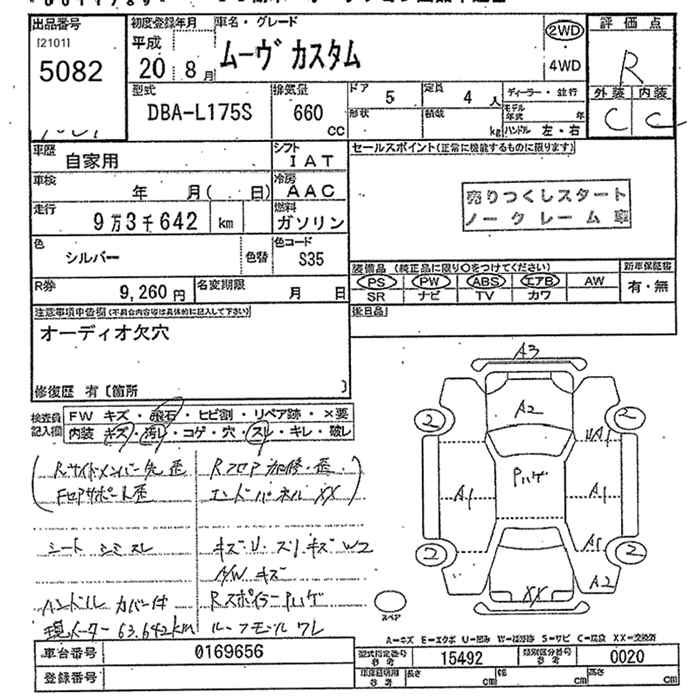 出品番号
[2101]
5082
初度登録年月
平成
20 8月
車名・グレード
ムーヴ カスタム
2WD
4WD
評価点
R
外装 内装
C C
型式
DBA-L175S
排気量
660
CC
ドア 5
定員 4 人
形状
積載 kg
ディーラー・並行
モデル年式 年
ハンドル 左・右
車歴
自家用
シフト
IAT
車検
年 月( 日)
冷房
AAC
走行
9万3千642 km
燃料
ガソリン
色
シルバー
色替
色コード
S35
R券
9,260円
名変期限
月 日
セールスポイント(正常に機能するものに限ります)
売りつくしスタート
ノークレーム車
装備品 (純正品に限り○をつけてください)
新車保証書
PS PW ABS エアB AW
SR ナビ TV カワ
有・無
後日品
注意事項申告欄(不具合内容等は具体的に記入して下さい)
オーディオ欠穴
修復歴 有〔箇所 〕
検査員記入欄
FW キズ・飛石・ヒビ割・リペア跡・×要
内装 キズ・汚れ・コゲ・穴・スレ・キレ・破レ
Rサイドメンバー先歪
Rフロア 修・歪
Fコアサポート歪
エンドパネル XX
シート シミ スレ
キズ・U・スリキズ W2
A/W キズ
ハンドル カバー付
Rスポイラー Pハゲ
現メーター 63.642km
ルーフモール ワレ
A3
A2
2 2
Pハゲ
A1 A1
A1
2 2
A2
XX
スペア
A-キズ E-エクボ U-凹み W-補修跡 S-サビ C-腐食 XX-交換済
車台番号
0169656
登録番号
型式指定番号
参考
15492
類別区分番号
参考
0020
車庫証明用
参考
長さ cm
幅 cm
高さ cm